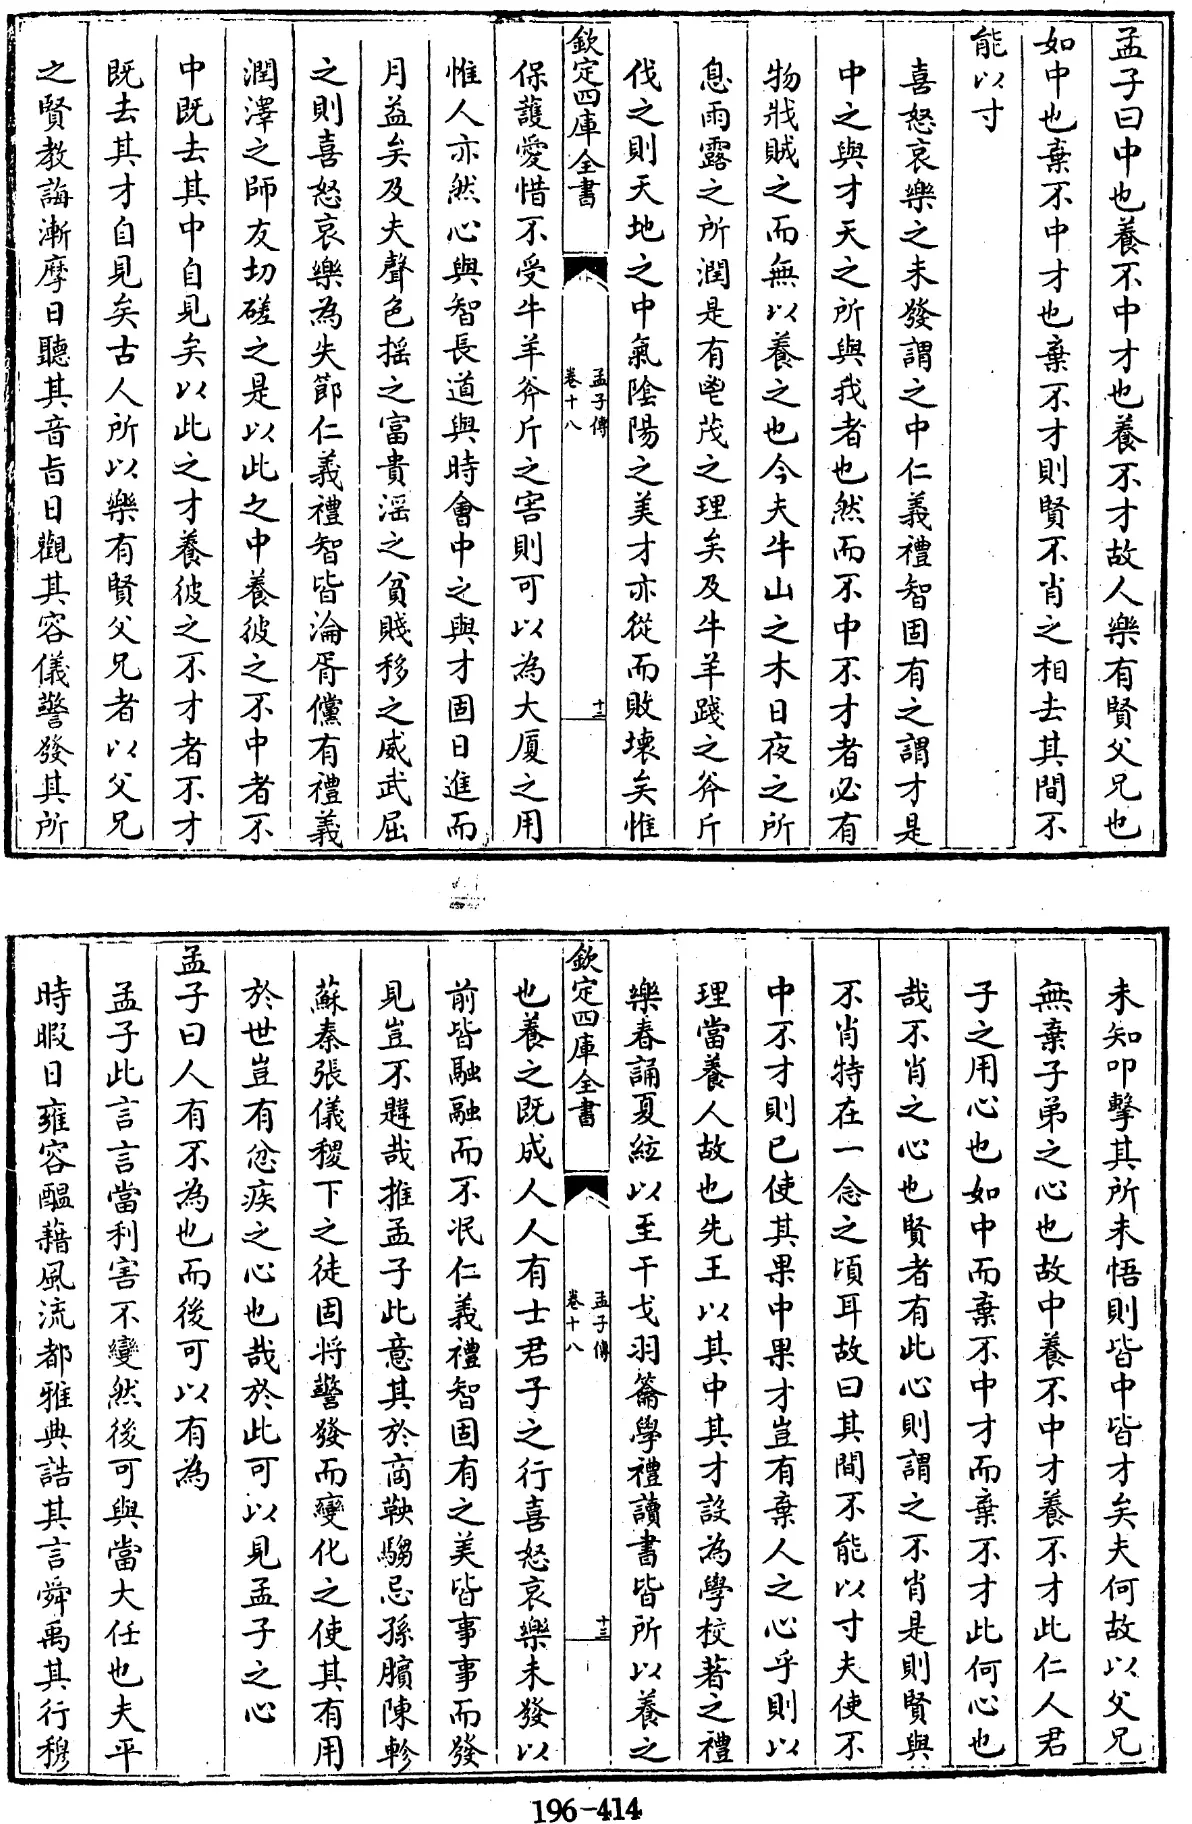 孟子曰中也養不中才也養不才故人樂有賢父兄也
如中也棄不中才也棄不才則賢不肖之相去其間不
能以寸
喜怒哀樂之未發謂之中仁義禮智固有之謂才是
中之與才天之所與我者也然而不中不才者必有
物戕賊之而無以養之也今夫牛山之木日夜之所
息雨露之所潤是有鬯茂之理矣及牛羊踐之斧斤
伐之則天地之中氣陰陽之美才亦從而敗壞矣惟
欽定四庫全書
孟子傳
卷十八
十二
保護愛惜不受牛羊斧斤之害則可以為大厦之用
惟人亦然心與智長道與時會中之與才固日進而
月益矣及夫聲色揺之富貴滛之貧賤移之威武屈
之則喜怒哀樂為失節仁義禮智皆淪胥儻有禮義
潤澤之師友切磋之是以此之中養彼之不中者不
中既去其中自見矣以此之才養彼之不才者不才
既去其才自見矣古人所以樂有賢父兄者以父兄
之賢教誨漸摩日聽其音旨日觀其容儀警發其所
未知叩擊其所未悟則皆中皆才矣夫何故以父兄
無棄子弟之心也故中養不中才養不才此仁人君
子之用心也如中而棄不中才而棄不才此何心也
哉不肖之心也賢者有此心則謂之不肖是則賢與
不肖特在一念之頃耳故曰其間不能以寸夫使不
中不才則已使其果中果才豈有棄人之心乎則以
理當養人故也先王以其中其才設為學校著之禮
樂春誦夏絃以至干戈羽籥學禮讀書皆所以養之
欽定四庫全書
孟子傳
卷十八
十三
也養之既成人人有士君子之行喜怒哀樂未發以
前皆融融而不泯仁義禮智固有之美皆事事而發
見豈不韙哉推孟子此意其於商鞅騶忌孫臏陳軫
蘇秦張儀稷下之徒固将警發而變化之使其有用
於世豈有忿疾之心也哉於此可以見孟子之心
孟子曰人有不為也而後可以有為
孟子此言言當利害不變然後可與當大任也夫平
時暇日雍容醖藉風流都雅典誥其言舜禹其行穆
196-414